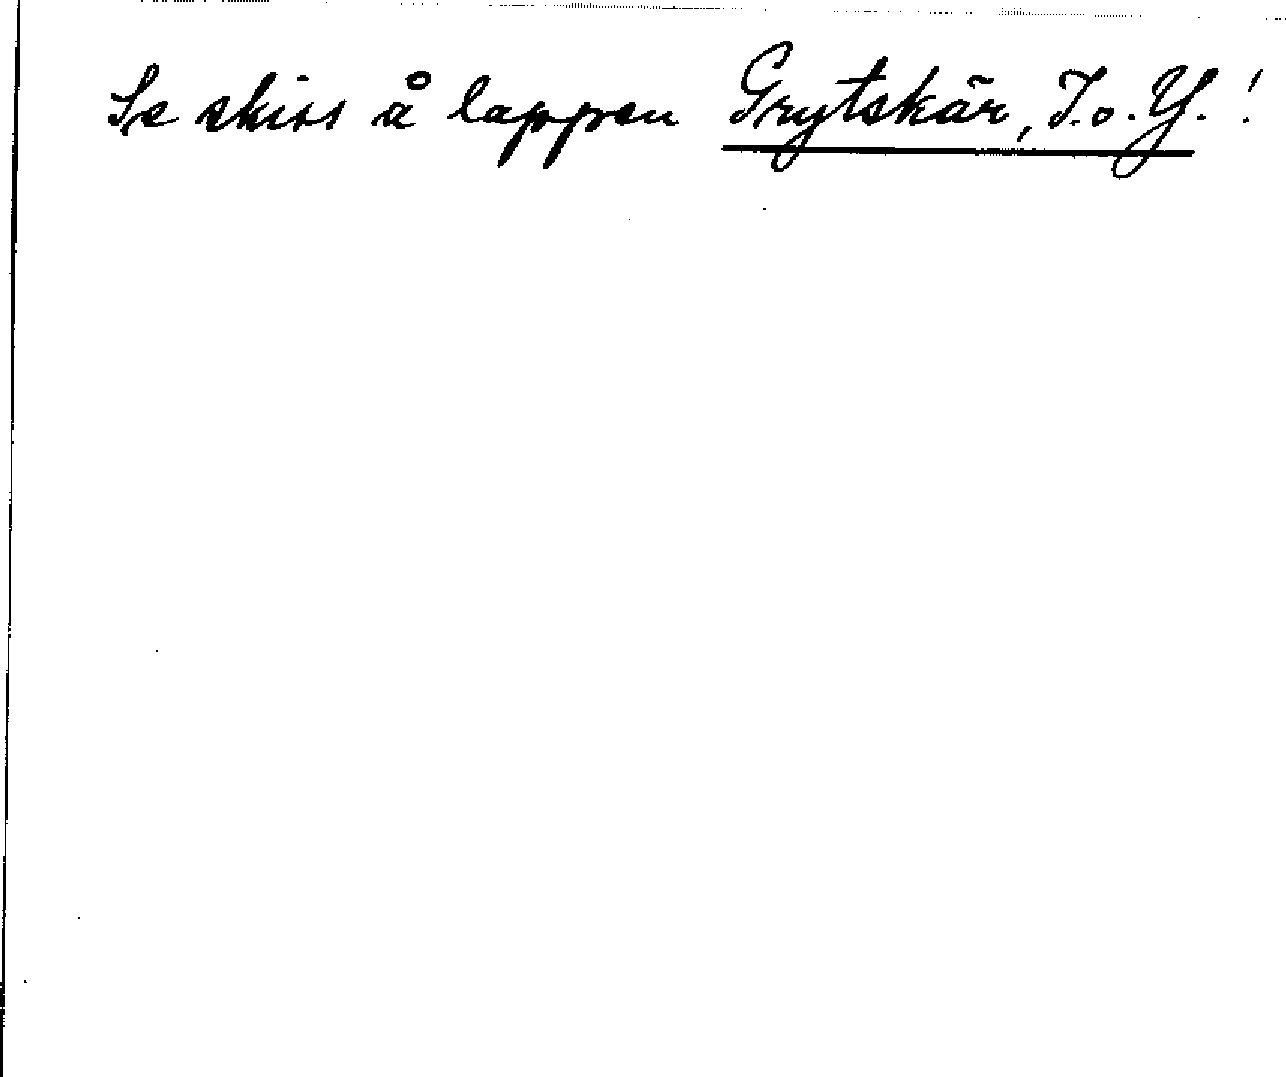 Se skiss å lappen Grytskär, I.o.Y.!